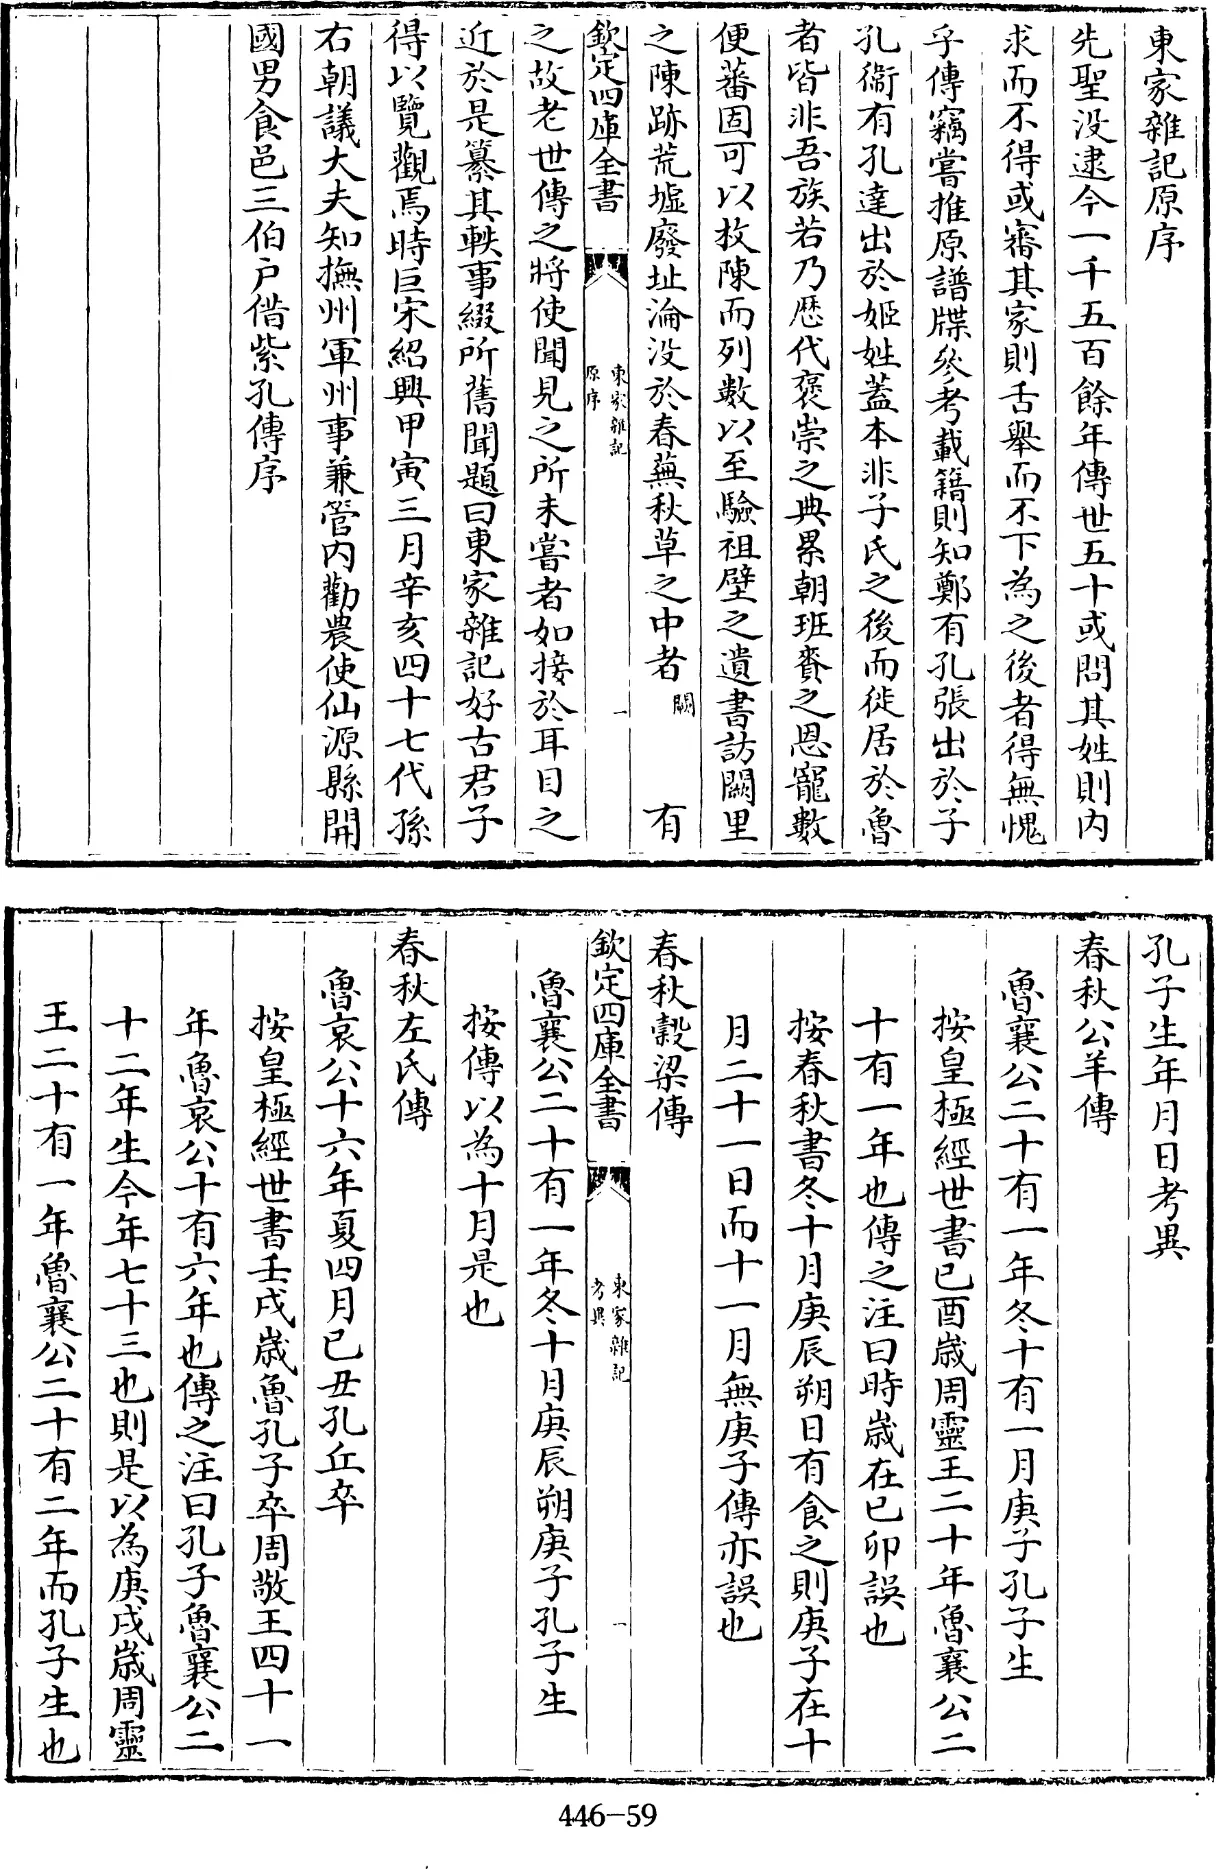 東家雜記原序
先聖没逮今一千五百餘年傳世五十或問其姓則内
求而不得或審其家則舌舉而不下為之後者得無愧
乎傳竊嘗推原譜牒叅考載籍則知鄭有孔張出於子
孔衞有孔達出於姬姓蓋本非子氏之後而徙居於魯
者皆非吾族若乃歴代褒崇之典累朝班賚之恩寵數
便蕃固可以枚陳而列數以至驗祖壁之遺書訪闕里
之陳跡荒墟廢址淪没於春蕪秋草之中者闕有
欽定四庫全書
東家雜記
原序
一
之故老世傳之將使聞見之所未嘗者如接於耳目之
近於是纂其軼事綴所舊聞題曰東家雜記好古君子
得以覽觀焉時巨宋紹興甲寅三月辛亥四十七代孫
右朝議大夫知撫州軍州事兼管内勸農使仙源縣開
國男食邑三伯户借紫孔傳序
孔子生年月日考異
春秋公羊傳
魯襄公二十有一年冬十有一月庚子孔子生
按皇極經世書已酉歲周靈王二十年魯襄公二
十有一年也傳之注曰時歲在已卯誤也
按春秋書冬十月庚辰朔日有食之則庚子在十
月二十一日而十一月無庚子傳亦誤也
春秋穀梁傳
欽定四庫全書
東家雜記
考異
一
魯襄公二十有一年冬十月庚辰朔庚子孔子生
按傳以為十月是也
春秋左氏傳
魯哀公十六年夏四月已丑孔丘卒
按皇極經世書壬戌歲魯孔子卒周敬王四十一
年魯哀公十有六年也傳之注曰孔子魯襄公二
十二年生今年七十三也則是以為庚戌歲周靈
王二十有一年魯襄公二十有二年而孔子生也
446-59